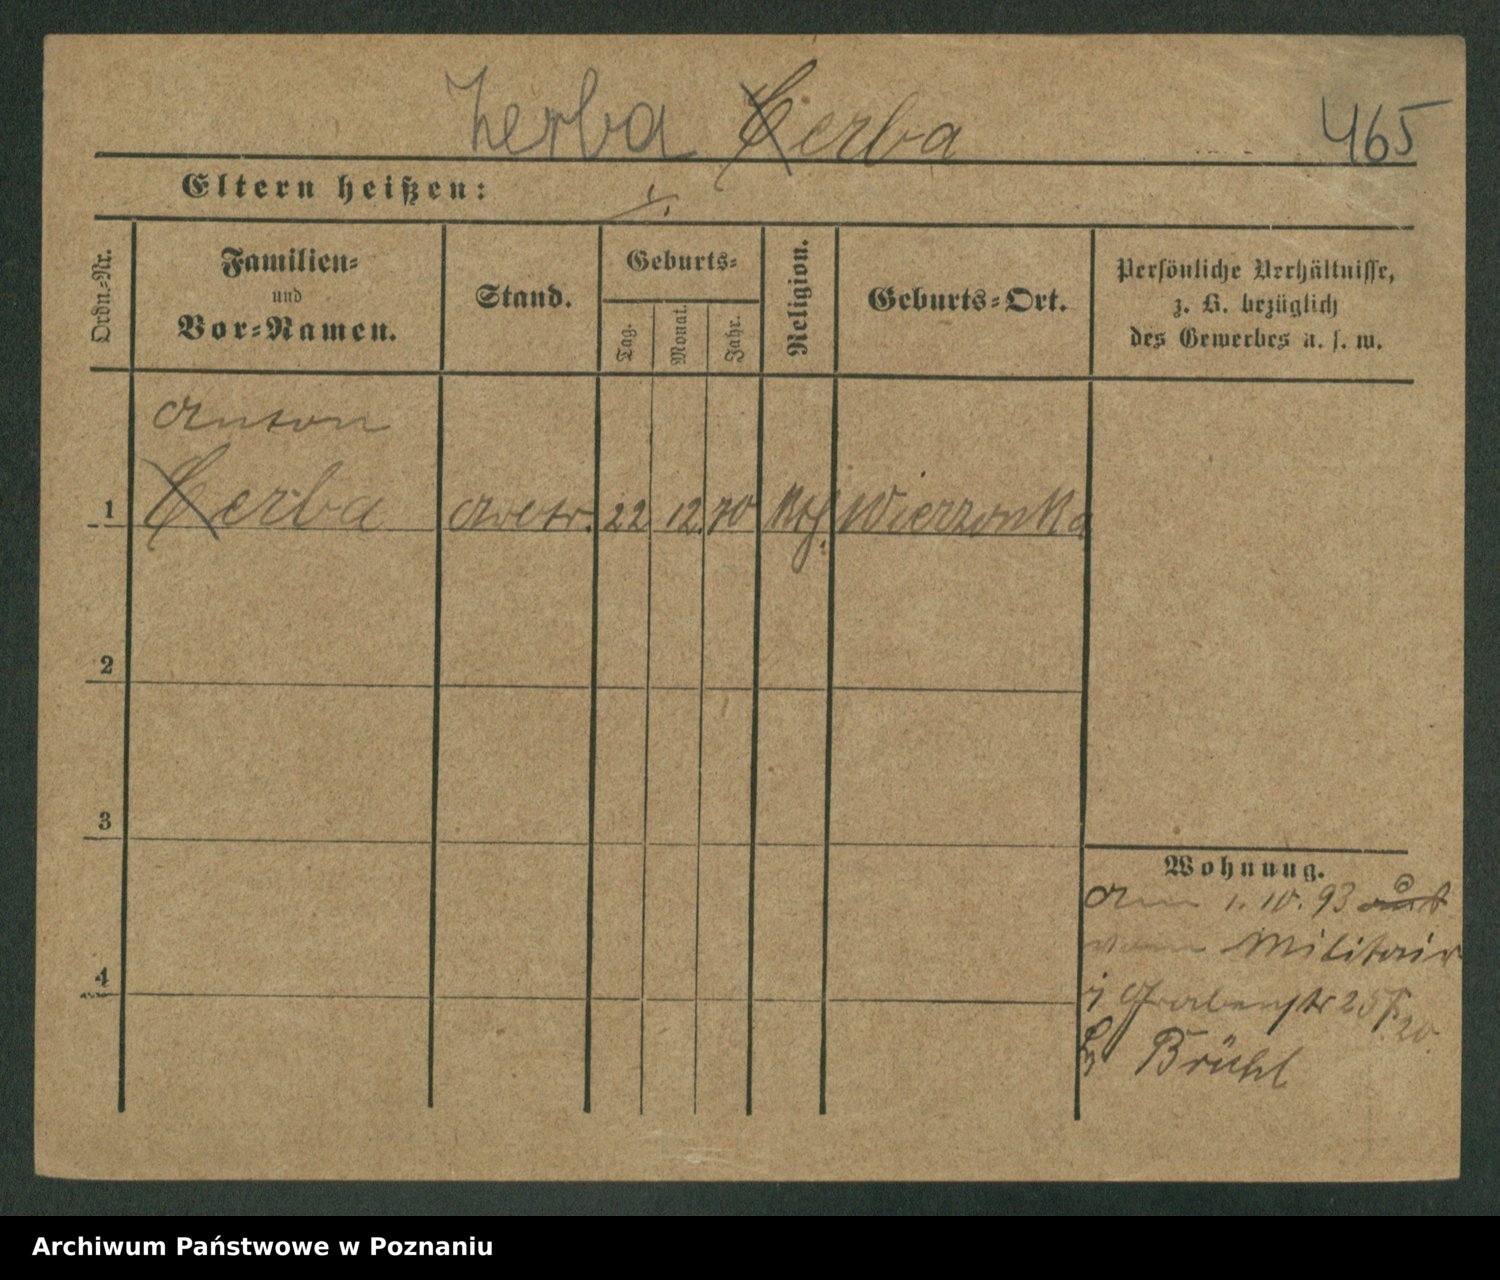 Zerba Cerba 465
Eltern heißen:
Ordn.-Nr.
Familien-
und
Vor-Namen.
Stand.
Geburts-
Tag.
Monat.
Jahr.
Religion.
Geburts-Ort.
Persönliche Verhältnisse,
z. B. bezüglich
des Gewerbes u. s. w.
Anton
1 Cerba 22 12. 70 Kth. Wierzonka
2
3
4
Wohnung.
Am 1. 10. 93
vom Militair
Grabenstr 25
20.
Brühl
Archiwum Państwowe w Poznaniu